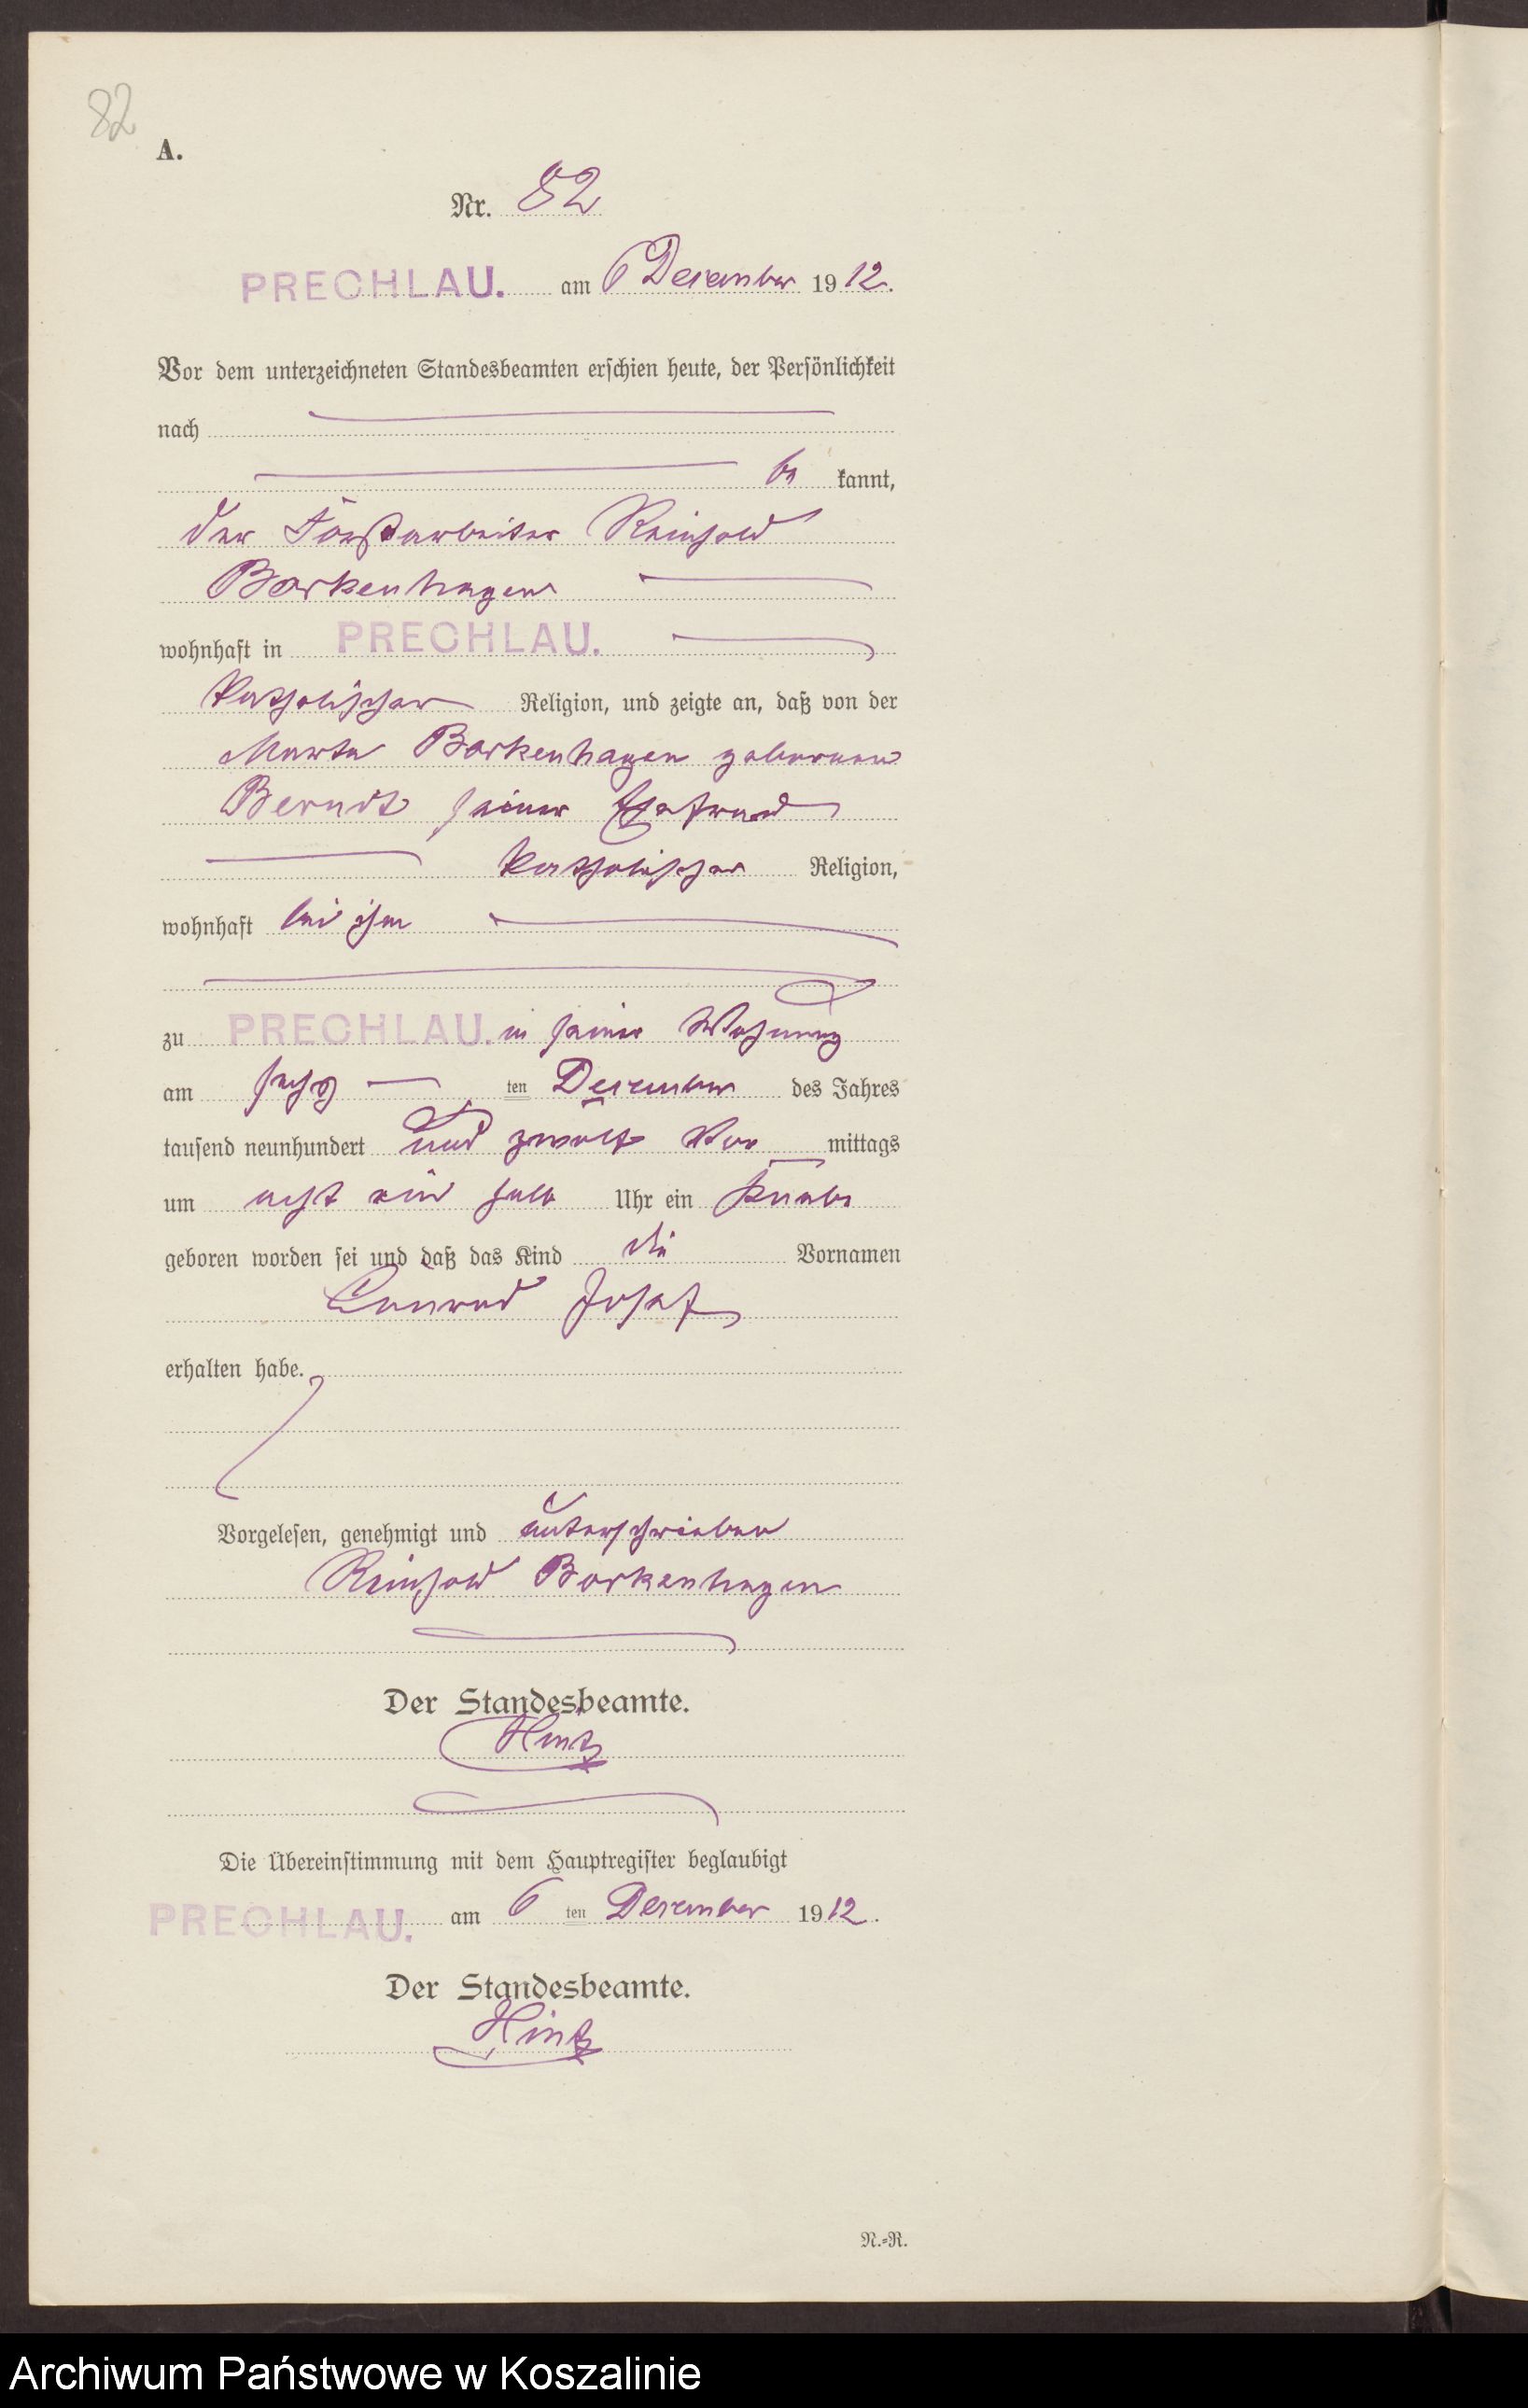 82
A.
Nr. 82
PRECHLAU. am 6 Dezember 1912.
Vor dem unterzeichneten Standesbeamten erschien heute, der Persönlichkeit
nach
be kannt,
der Forstarbeiter Reinhold
Borkenhagen
wohnhaft in PRECHLAU.
katholischer Religion, und zeigte an, daß von der
Marta Borkenhagen geborenen
Berndt seiner Ehefrau
katholischer Religion,
wohnhaft bei ihm
zu PRECHLAU. in seiner Wohnung
am sechs ten Dezember des Jahres
tausend neunhundert und zwölf Vor mittags
um acht ein halb Uhr ein Knabe
geboren worden sei und daß das Kind die Vornamen
Conrad Josef
erhalten habe.
Vorgelesen, genehmigt und unterschrieben
Reinhold Borkenhagen
Der Standesbeamte.
Hintz
Die Übereinstimmung mit dem Hauptregister beglaubigt
PRECHLAU. am 6 ten Dezember 1912.
Der Standesbeamte.
Hintz
N.=R.
Archiwum Państwowe w Koszalinie